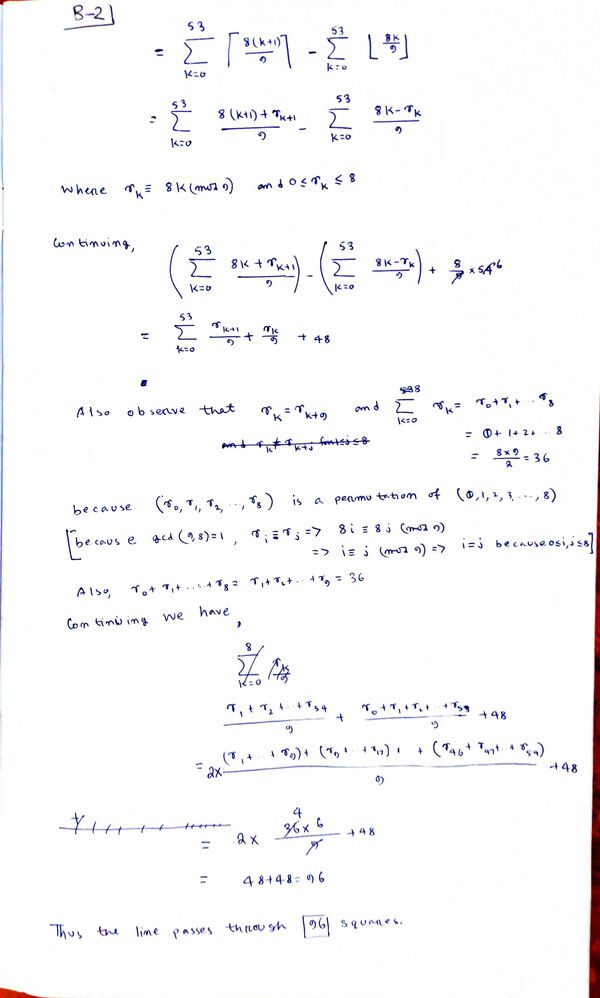 B-2]
= \sum_{k=0}^{53} ⌈8(k+1)/9⌉ - \sum_{k=0}^{53} ⌊8k/9⌋
= \sum_{k=0}^{53} (8(k+1)+r_{k+1})/9 - \sum_{k=0}^{53} (8k-r_k)/9
where r_k ≡ 8k (mod 9) and 0 ≤ r_k ≤ 8
Continuing,
(\sum_{k=0}^{53} (8k+r_{k+1})/9) - (\sum_{k=0}^{53} (8k-r_k)/9) + 8/9 × 54 6
= \sum_{k=0}^{53} r_{k+1}/9 + r_k/9 + 48
Also observe that r_k = r_{k+9} and \sum_{k=0}^{8} r_k = r_0+r_1+... r_8
and r_k ≠ r_{k+j} for 1≤j≤8 = 0+1+2+.. 8
= (8×9)/2 = 36
because (r_0, r_1, r_2, .., r_8) is a permutation of (0,1,2,3,...,8)
[because gcd(9,8)=1, r_i ≡ r_j => 8i ≡ 8j (mod 9)
=> i ≡ j (mod 9) => i=j because 0≤i,j≤8]
Also, r_0+r_1+...+r_8 = r_1+r_2+..+r_9 = 36
Continuing we have,
\sum_{k=0}^{8} r_k/9
(r_1+r_2+..+r_{54})/9 + (r_0+r_1+r_2+..+r_{53})/9 + 48
= 2× ((r_1+..+r_9)+(r_9+..+r_{17})+ +(r_{46}+r_{47}+..+r_{54}))/9 + 48
= 2 × (36×6)/9 4 + 48
= 48+48 = 96
Thus the line passes through 96 squares.